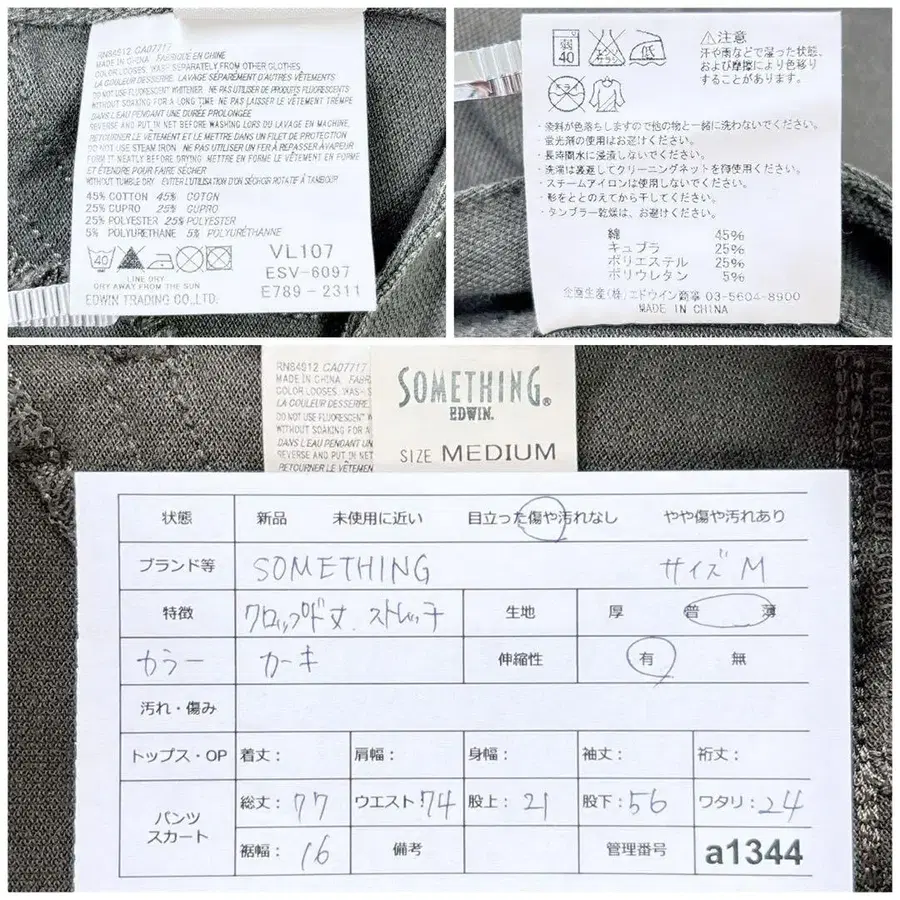 RN84912 CA07717
MADE IN CHINA FABRIQUÉ EN CHINE
COLOR LOOSES, WASH SEPARATELY FROM OTHER GLOTHES
LA COULEUR DESSERRE, LAVAGE SÉPARÉMENT D'AUTRES VÊTEMENTS
DO NOT USE FLUORESCENT WHITENER NE PAS UTILISER DE PRODUITS FLUORESCENTS
WITHOUT SOAKING FOR A LONG TIME NE PAS LAISSER LE VÊTEMENT TREMPE
DANS L'EAU PENDANT UNE DURÉE PROLONGÉE
REVERSE AND PUT IN NET BEFORE WASHING LORS DU LAVAGE EN MACHINE,
RETOURNER LE VÊTEMENT ET LE METTRE DANS UN FILET DE PROTECTION
DO NOT USE STEAM IRON NE PAS UTILISER UN FER À REPASSER À VAPEUR
FORM IT NEATLY BEFORE DRYING METTRE EN FORME LE VÊTEMENT EN FORME
ET ÉTENDRE POUR FAIRE SÉCHER
WITHOUT TUMBLE DRY EVITER L'UTILISATION D'UN SÉCHOIR ROTATIF À TAMBOUR
45% COTTON 45% COTON
25% CUPRO 25% CUPRO
25% POLYESTER 25% POLYESTER
5% POLYURETHANE 5% POLYURÉTHANNE
40
LINE DRY
DRY AWAY FROM THE SUN
EDWIN TRADING CO.,LTD.
VL107
ESV-6097
E789-2311
弱
40
エンソサラシ
低
ドライ
⚠注意
汗や雨などで湿った状態、
および摩擦により色移り
することがあります。
・染料が色落ちしますので他の物と一緒に洗わないでください。
・蛍光剤の使用はお避けください。
・長時間水に浸漬しないでください。
・洗濯は裏返してクリーニングネットを御使用ください。
・スチームアイロンは使用しないでください。
・形をととのえてから干してください。
・タンブラー乾燥は、お避けください。
綿 45%
キュプラ 25%
ポリエステル 25%
ポリウレタン 5%
企画生産(株)エドウイン商事 03-5604-8900
MADE IN CHINA
RN84912 CA07717
MADE IN CHINA FABRI
COLOR LOOSES, WASH S
LA COULEUR DESSERRE,
DO NOT USE FLUORESCENT W
WITHOUT SOAKING FOR A
DANS L'EAU PENDANT UN
REVERSE AND PUT IN NET
RETOURNER LE VÊTEMEN
SOMETHING®
EDWIN.
SIZE MEDIUM
状態 新品 未使用に近い 目立った傷や汚れなし やや傷や汚れあり
ブランド等 SOMETHING サイズ M
特徴 クロップド丈 ストレッチ 生地 厚 普 薄
カラー カーキ 伸縮性 有 無
汚れ・傷み
トップス・OP 着丈: 肩幅: 身幅: 袖丈: 裄丈:
パンツ
スカート
総丈:77 ウエスト:74 股上:21 股下:56 ワタリ:24
裾幅:16 備考 管理番号 a1344